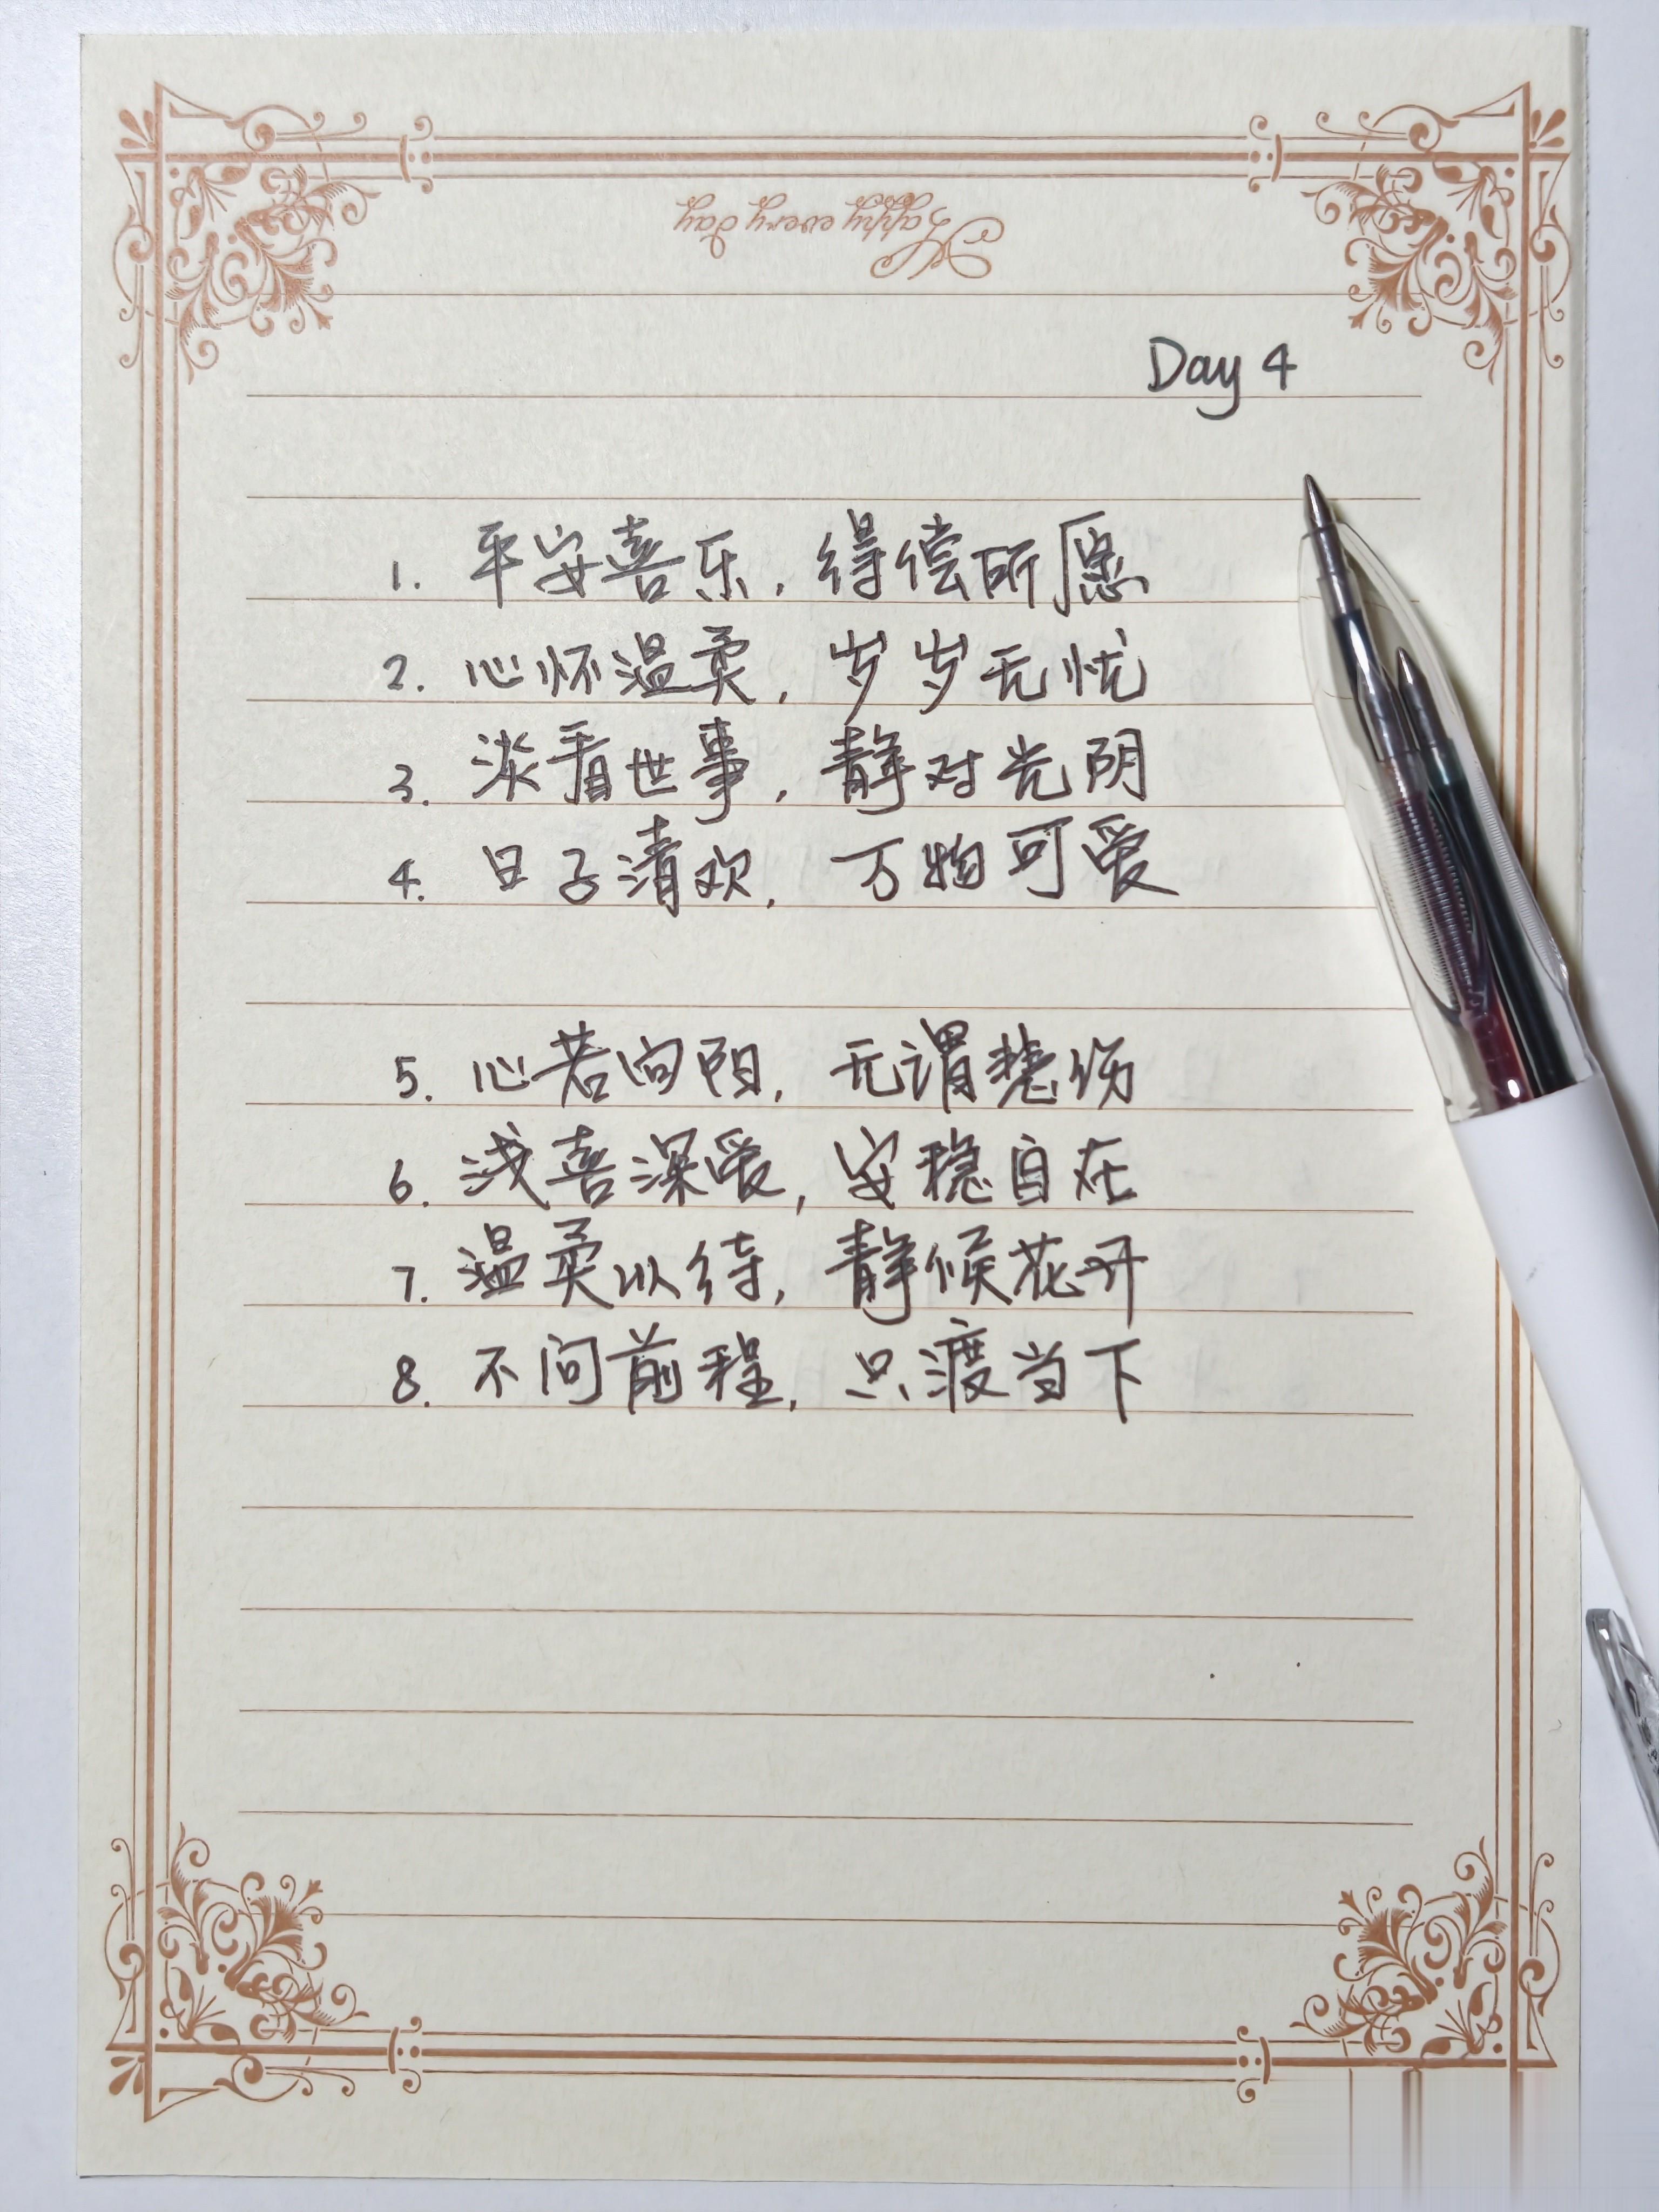 Happy every day
Day 4
1. 平安喜乐，得偿所愿
2. 心怀温柔，岁岁无忧
3. 淡看世事，静对光阴
4. 日子清欢，万物可爱
5. 心若向阳，无谓悲伤
6. 浅喜深爱，安稳自在
7. 温柔以待，静候花开
8. 不问前程，只渡当下